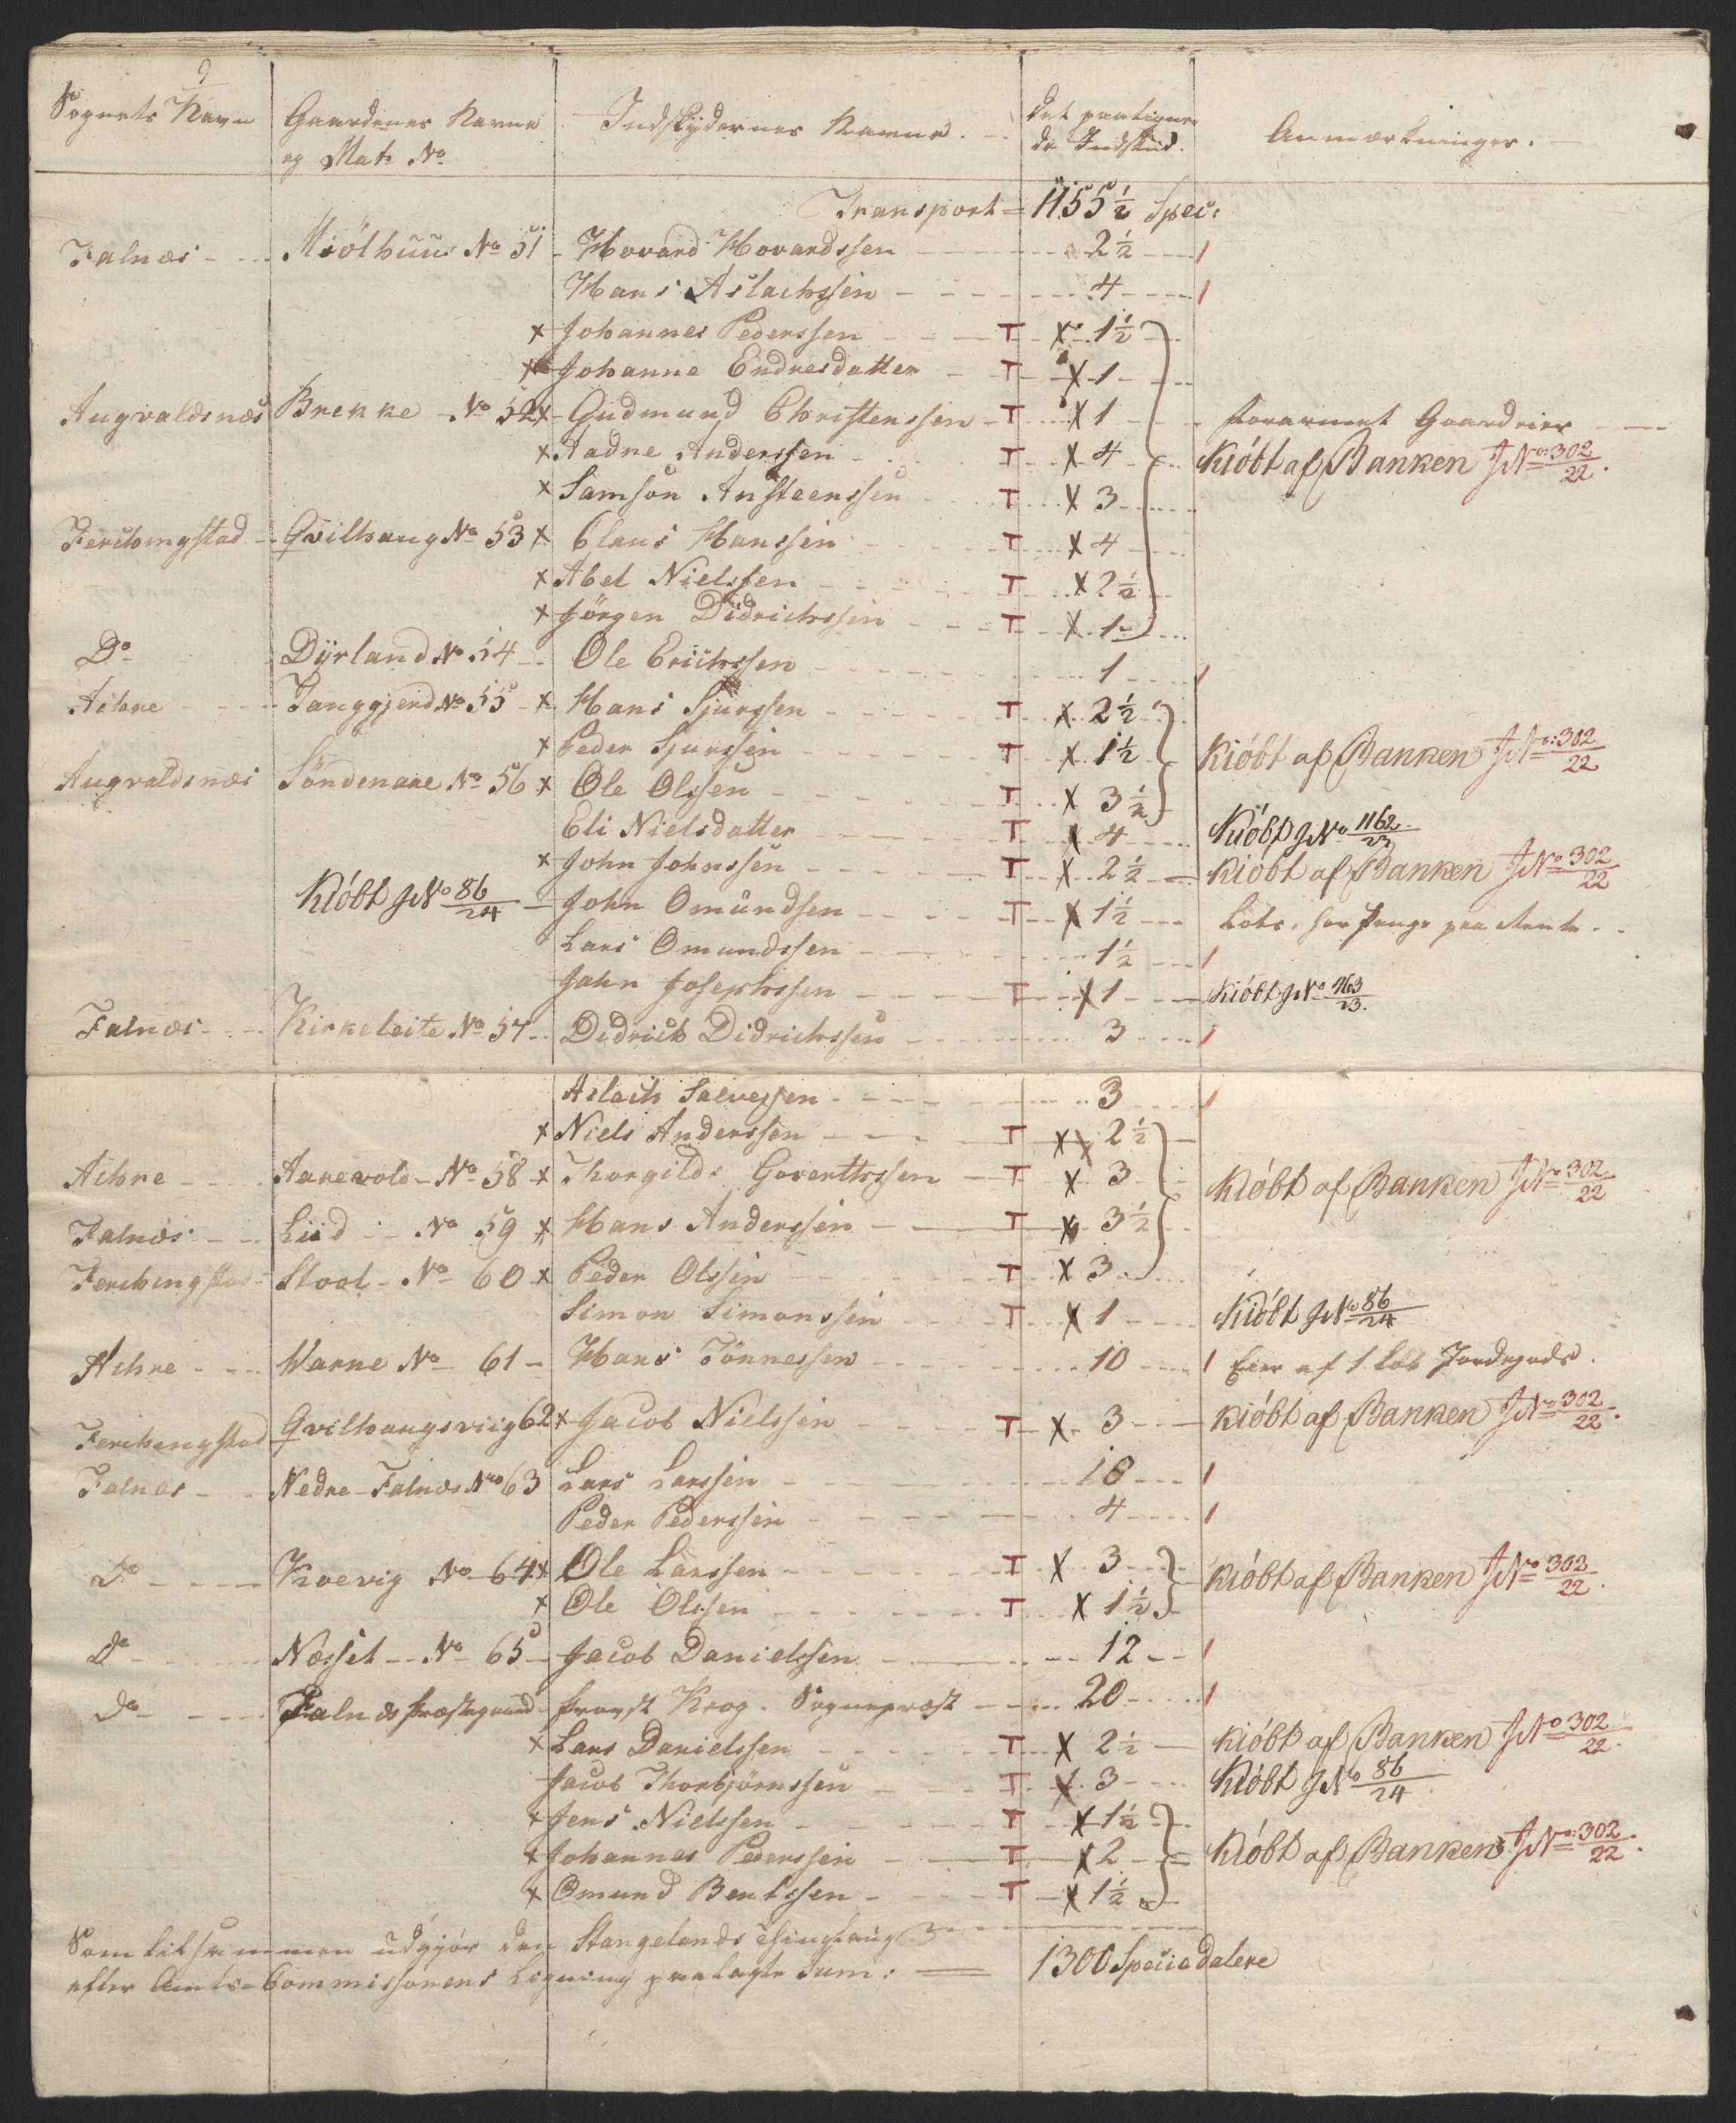 9
Sognets Navn | Gaardenes Navne og Mats No | Indskydernes Navne. | Det paalignede Indskud. | Anmærkninger.
Transport = 1155½ Spec:
Falnæs | Miölhuus No 51 | Hovard Hovardssen | 2½
Hans Aslachssen | 4
x Johannes Pederssen | T x 1½
x Johanne Endresdatter | T x 1
Augvaldsnæs | Brekke No 52 | x Gudmund Christenssen | T x 1 | forarmet Gaardeier
x Aadne Anderssen | T x 4 | Kióbt af Banken JNo: 302/22.
x Samson Ansteenssen | T x 3
Ferchingstad | Qvilhaug No 53 | x Claus Hanssen | T x 4
x Abel Nielssen | T x 2½
x Jörgen Didrichssen | T x 1
Do | Dÿrland No 54 | Ole Erichssen | 1
Achre | Tanggjerd No 55 | x Hans Sjurssen | T x 2½
x Peder Sjurssen | T x 1½ | Kióbt af Banken JNo: 302/22
Augvaldsnæs | Söndenaae No 56 | x Ole Olssen | T x 3½
Eli Nielsdatter | T x 4 | Kióbt JNo 1162/23
x John Johnssen | T x 2½ | Kióbt af Banken JNo 302/22
Kióbt JNo 86/24 | John Omundsen | T x 1½ | Lots. har penge paa Rente.
Lars Omundssen | 1½
John Josephssen | T x 1 | Kióbt JNo 463/23.
Falnæs | Kirkeleite No 57 | Didrich Didrichssen | 3
Aslach Salvessen | 3
x Niels Anderssen | T x 2½
Achre | Aarevold No 58 | x Thorgild: Goverthssen | T x 3 | Kióbt af Banken JNo 302/22
Falnæs | Liid No 59 | x Hans Anderssen | T x 3½
Ferchingstad | Stool No 60 | x Peder Olssen | T x 3
Simon Simonssen | T x 1 | Kióbt JNo 86/24
Achre | Varne No 61 | Hans Tönnessen | 10 | Eier af 1 Lób Jordegods.
Ferchengstad | Qvilhaugsviig 62 | x Jacob Nielssen | T x 3 | Kióbt af Banken JNo 302/22.
Falnæs | Nedre Falnæs No 63 | Lars Larssen | 18
Peder Pederssen | 4
Do | Koevig No 64 | x Ole Larssen | T x 3 | Kióbt af Banken JNo 303/22.
x Ole Olssen | T x 1½
Do | Næsset No 65 | Jacob Danielssen | 12
Do | Falnæs Præstegaard | Provst Krog. Sognepræst | 20
x Lars Danielssen | T x 2½ | Kióbt af Banken JNo 302/22.
Jacob Thorbjörnssen | T x 3 | Kióbt JNo 86/24
x Jens Nielssen | T x 1½
x Johannes Pederssen | T x 2 | Kióbt af Banken JNo: 302/22.
x Omund Bentssen | T x 1½
Som tilsammen udgjör den Stangelands Thinglaug
efter Amts-Commissionens Ligning paalagte Sum: = 1300 Speciedalere